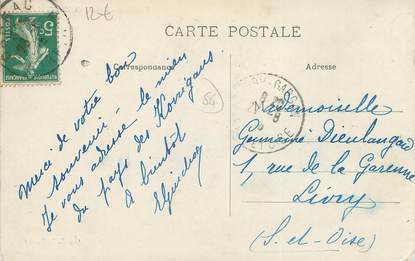 12€
CARTE POSTALE
Correspondance
Adresse
5c
56
Merci de votre bon
souvenir -
Je vous adresse le mien
du pays des Korrigans.
A bientôt
Mademoiselle
Germaine Dieulangard
1, rue de la Garenne
Livry
(S.-et-Oise)